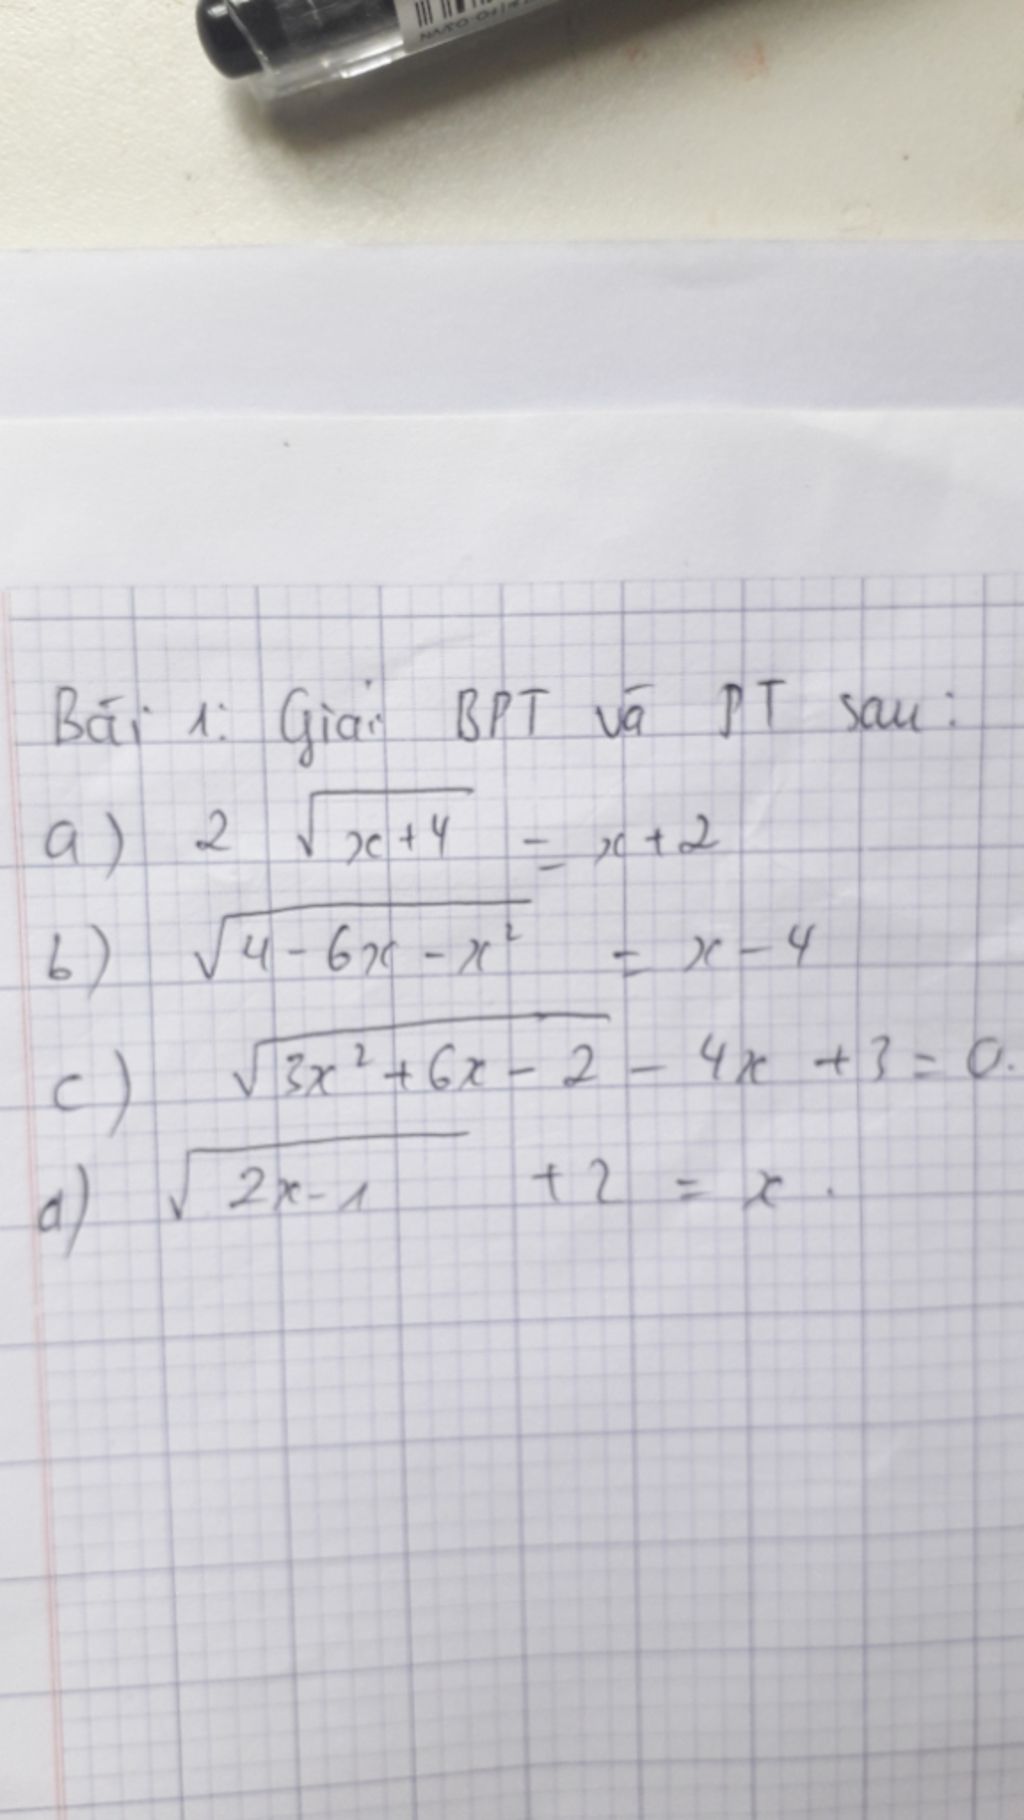 Bài 1: Giải BPT và PT sau:
a) 2 √(x+4) = x+2
b) √(4-6x-x²) = x-4
c) √(3x²+6x-2) - 4x +3=0.
d) √(2x-1) +2 = x.